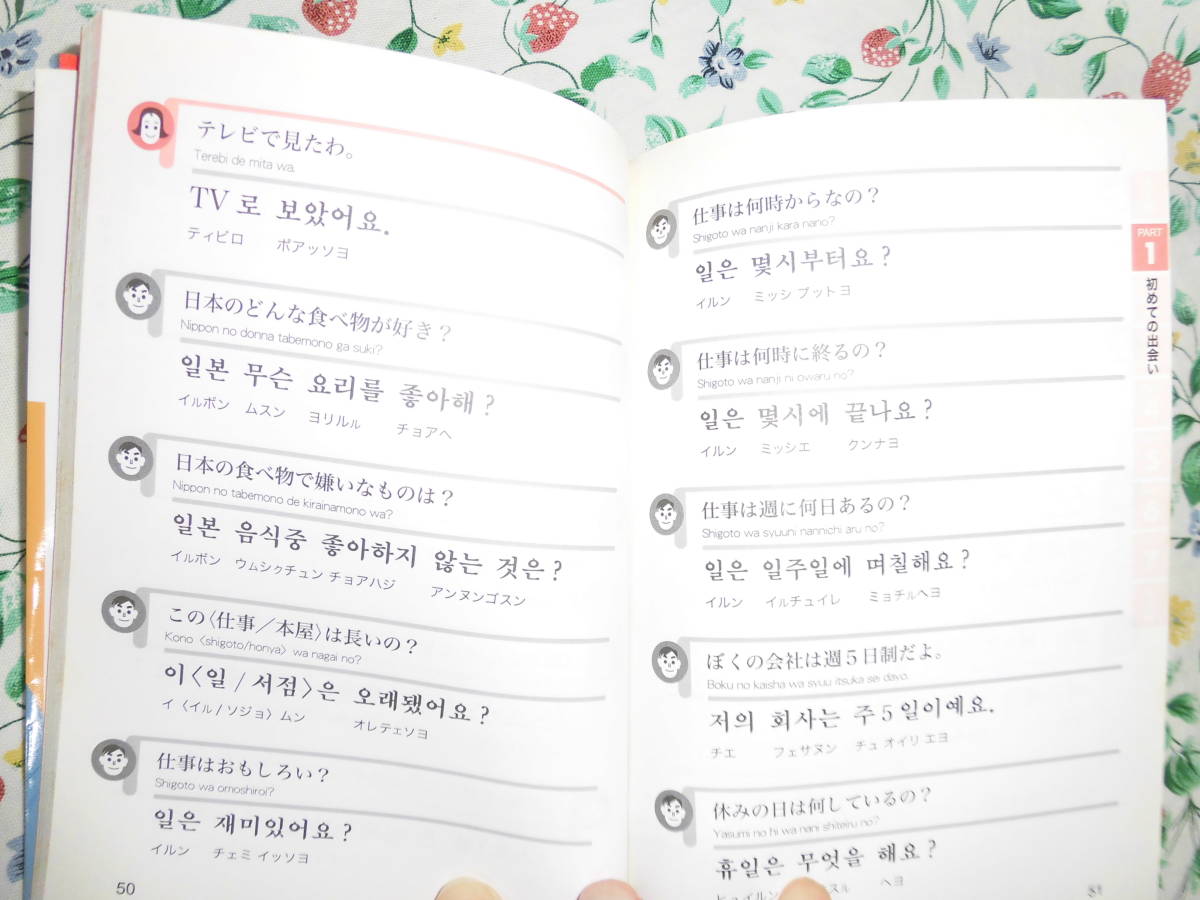 テレビで見たわ。
Terebi de mita wa.
TV로 보았어요.
ティビロ ボアッソヨ
日本のどんな食べ物が好き？
Nippon no donna tabemono ga suki?
일본 무슨 요리를 좋아해?
イルボン ムスン ヨリルル チョアヘ
日本の食べ物で嫌いなものは？
Nippon no tabemono de kirainamono wa?
일본 음식중 좋아하지 않는 것은?
イルボン ウムシクチュン チョアハジ アンヌンゴスン
この〈仕事／本屋〉は長いの？
Kono〈shigoto/honya〉wa nagai no?
이〈일/서점〉은 오래됐어요?
イ〈イル/ソジョ〉ムン オレテェソヨ
仕事はおもしろい？
Shigoto wa omoshiroi?
일은 재미있어요?
イルン チェミ イッソヨ
50
仕事は何時からなの？
Shigoto wa nanji kara nano?
일은 몇시부터요?
イルン ミッシ ブットヨ
仕事は何時に終るの？
Shigoto wa nanji ni owaru no?
일은 몇시에 끝나요?
イルン ミッシエ クンナヨ
仕事は週に何日あるの？
Shigoto wa syuuni nannichi aru no?
일은 일주일에 며칠해요?
イルン イルチュイレ ミョチルヘヨ
ぼくの会社は週５日制だよ。
Boku no kaisha wa syuu itsuka sei dayo.
저의 회사는 주5일이예요.
チエ フェサヌン チュ オイリ エヨ
休みの日は何しているの？
Yasumi no hi wa nani shiteiru no?
휴일은 무엇을 해요?
ヘヨ
51
PART
1
初めての出会い